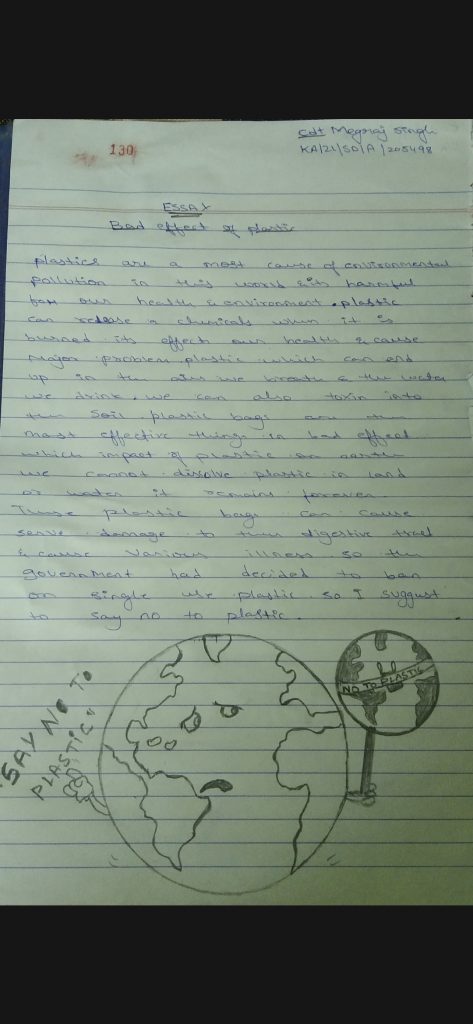 Cdt Megraj Singh
KA/21/SD/A/205498
130
ESSAY
Bad effect of plastic
plastics are a most cause of environmental
pollution in this world & its harmful
for our health & environment. plastic
can release a chemicals when it is
burned its effect our health & cause
major problem plastic which can end
up in the air we breath & the water
we drink. we can also toxin into
the soil. plastic bags are the
most effective things in bad effect
which impact of plastic on earth
we cannot disolve plastic in land
or water it remains forever.
These plastic bags can cause
serve damage to their digestive tract
& cause various illness so the
government had decided to ban
on single use plastic. so I suggust
to say no to plastic.
NO TO PLASTIC
"SAY NO TO
PLASTIC"